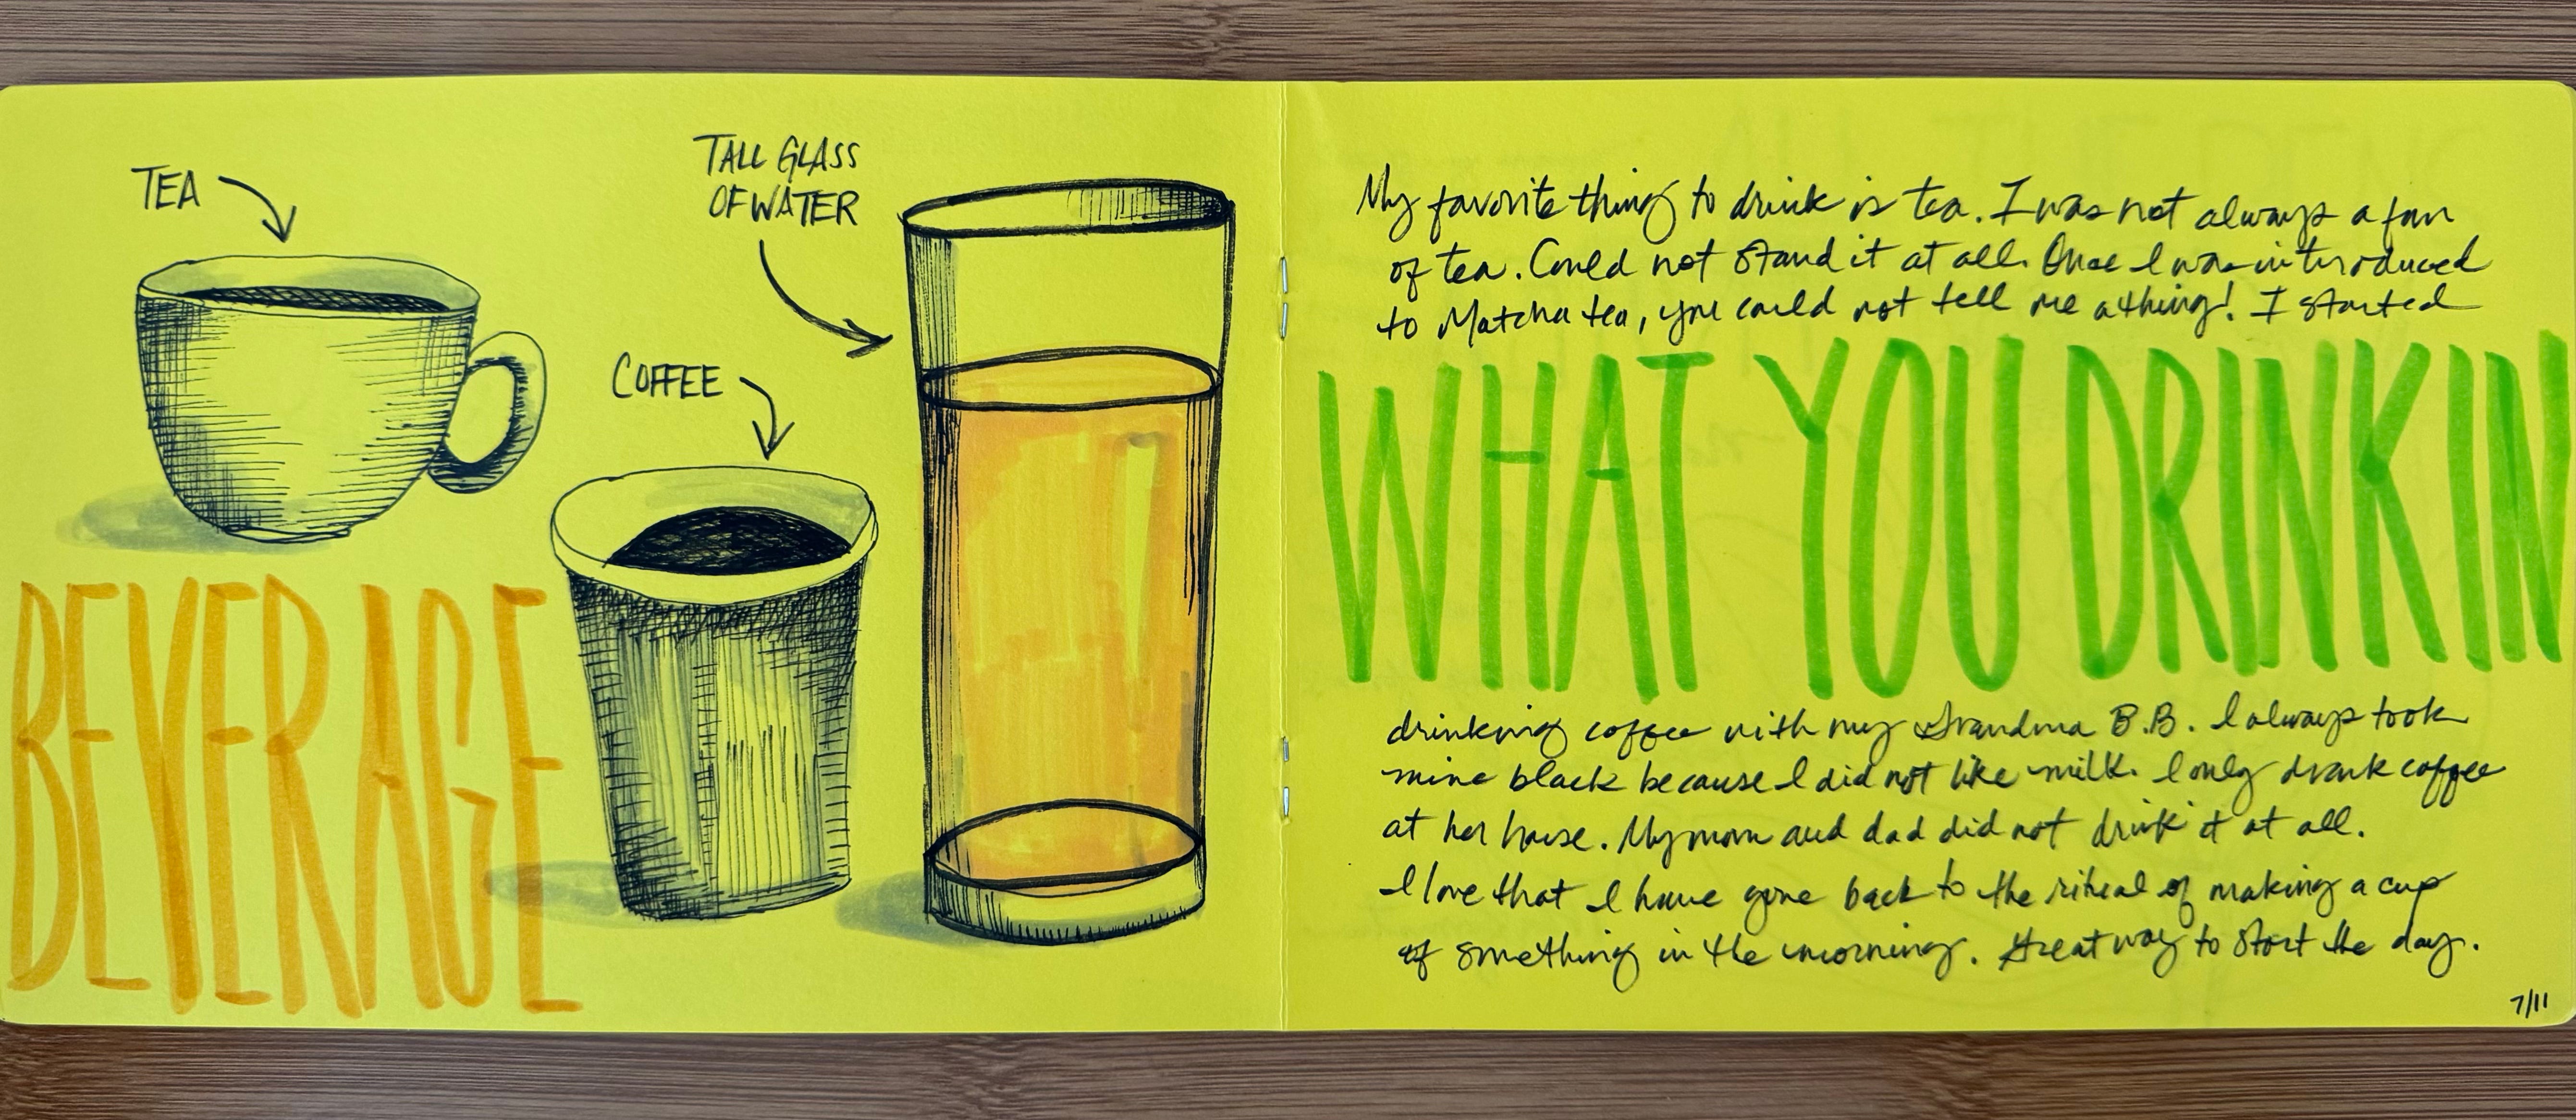 TEA
TALL GLASS
OF WATER
COFFEE
BEVERAGE
My favorite thing to drink is tea. I was not always a fan
of tea. Could not stand it at all. Once I was introduced
to Matcha tea, you could not tell me a thing! I started
WHAT YOU DRINKIN
drinking coffee with my Grandma B.B. I always took
mine black because I did not like milk. I only drank coffee
at her house. My mom and dad did not drink it at all.
I love that I have gone back to the ritual of making a cup
of something in the morning. Great way to start the day.
7/11